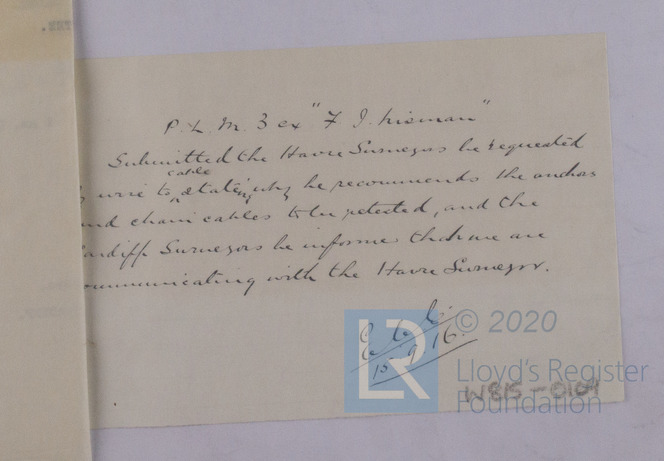 P. L. M. 3 ex "F. J. Lisman"
Submitted the Havre Surveyors be requested
by wire to cable, stating why he recommends the anchors
and chain cables to be retested, and the
Cardiff Surveyors be informed that we are
communicating with the Havre Surveyor.
15.9.16.
LR
© 2020
Lloyd's Register
Foundation
W815-0104